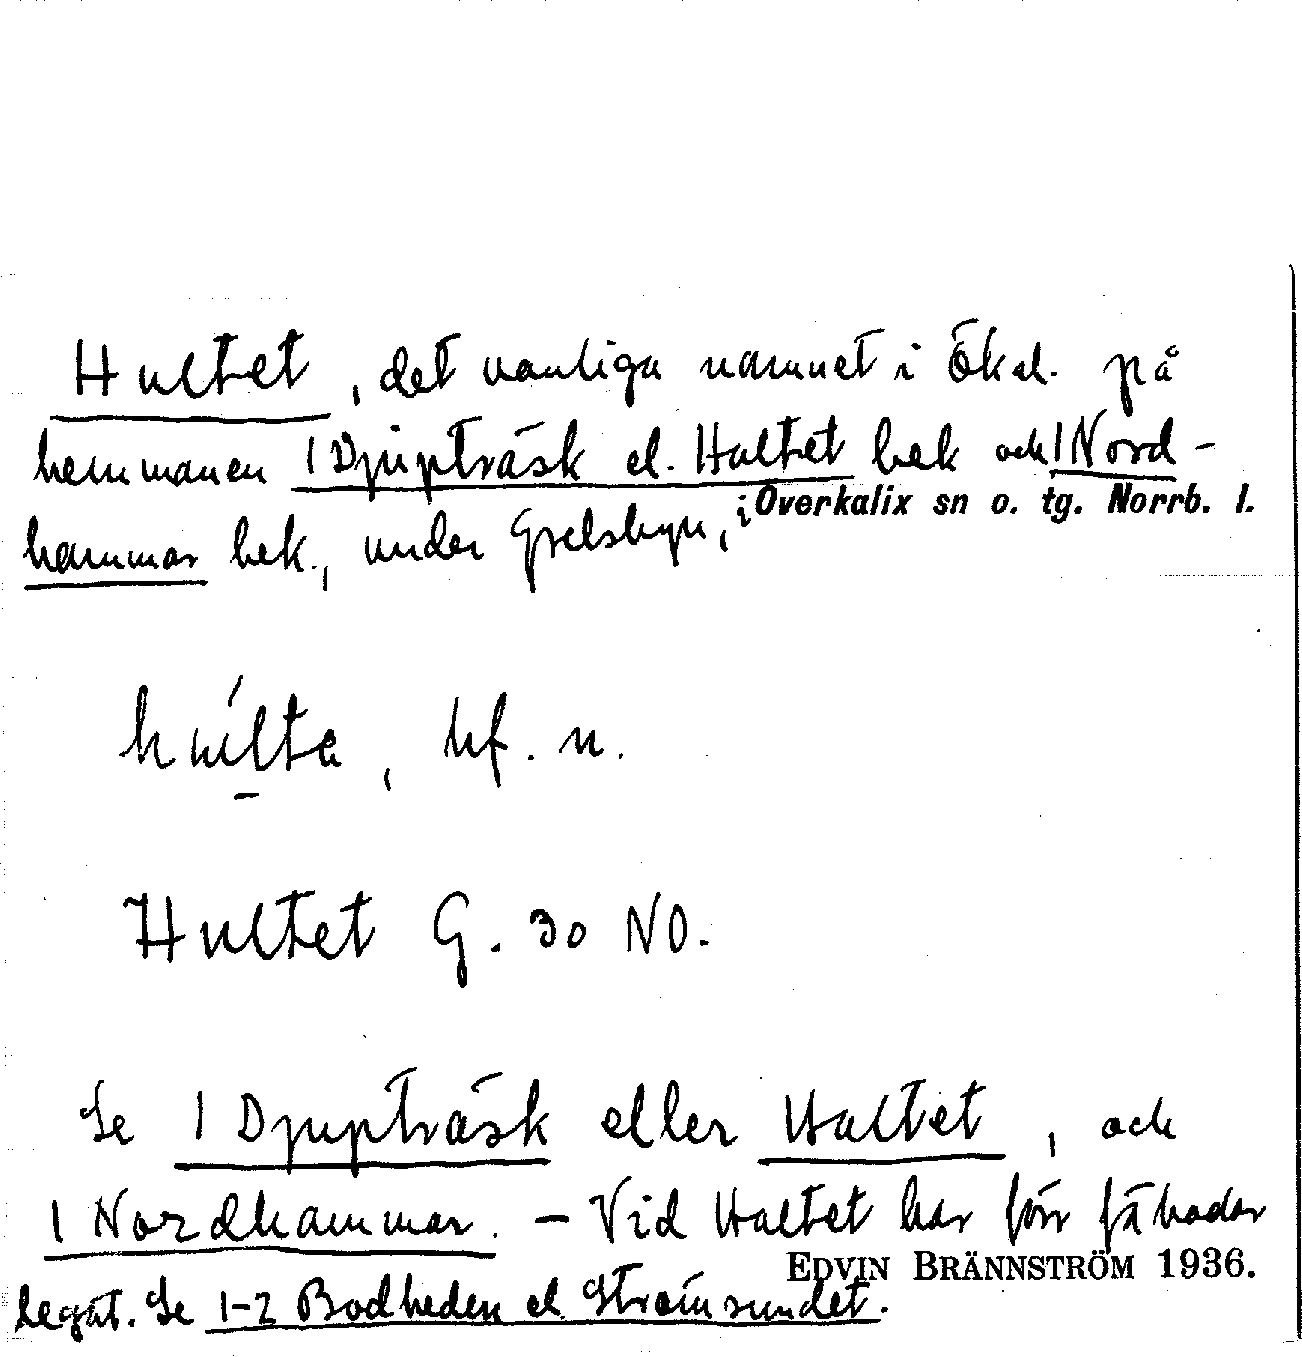 Hultet, det vanliga namnet i Ökal. på
hemmanen 1 Djupträsk el. Hultet bek och 1 Nord-
hammar bek., under Grelsbyn, i Överkalix sn o. tg. Norrb. l.
húlta, bf. n.
Hultet G. 30 NO.
Se 1 Djupträsk eller Hultet, och
1 Nordhammar. – Vid Hultet har förr fäbodar
legat. Se 1-2 Bodheden el. Strömsundet.
EDVIN BRÄNNSTRÖM 1936.